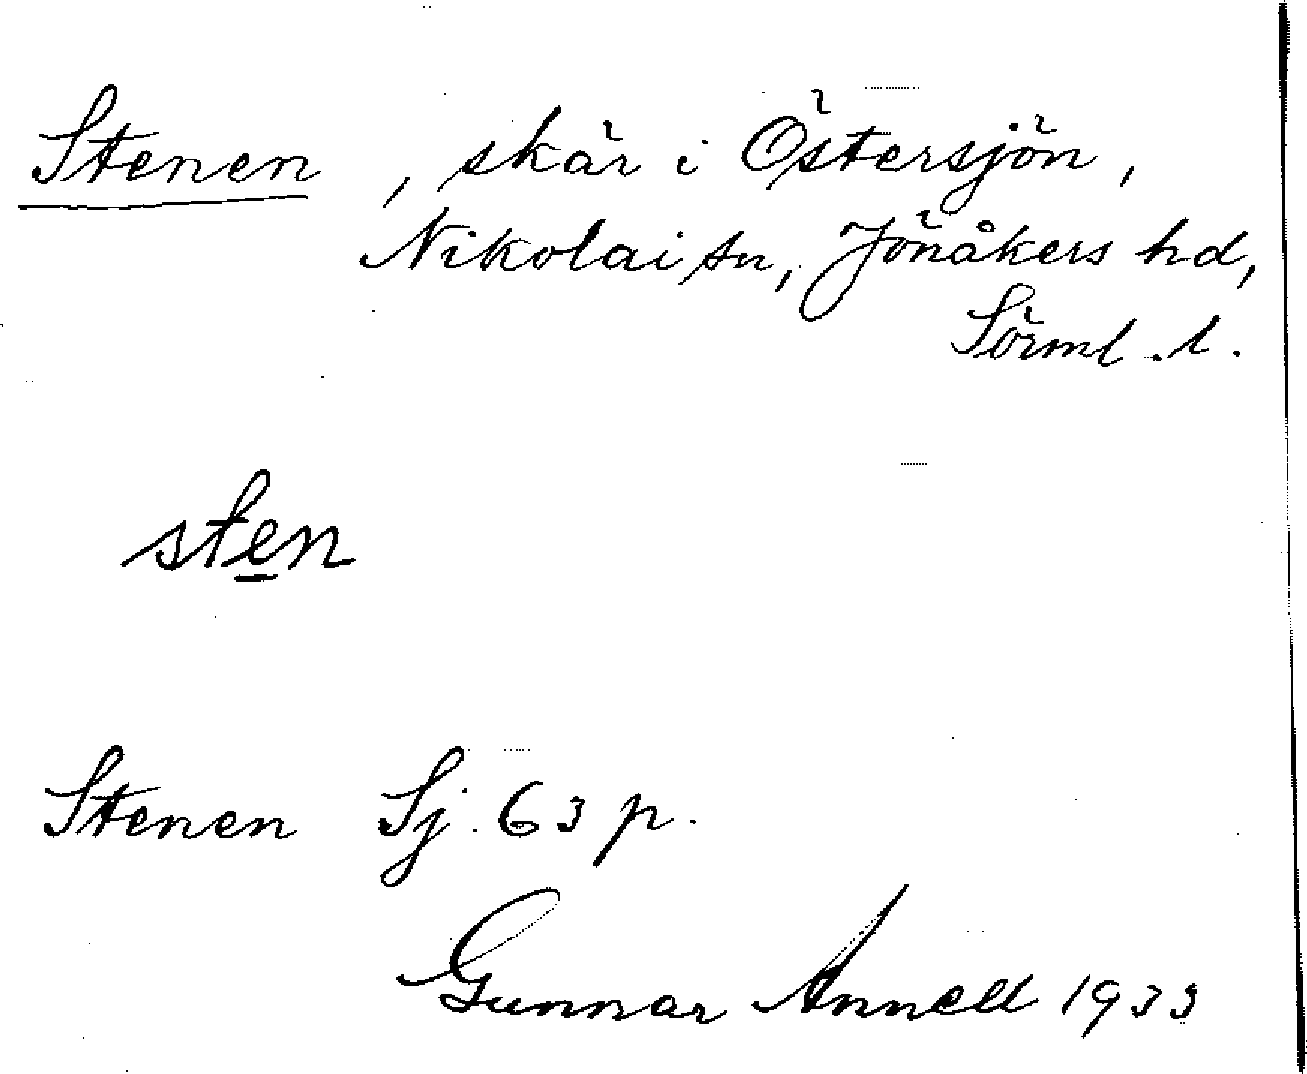 Stenen, skär i Östersjön,
Nikolai sn, Jönåkers hd,
Sörml. l.
sten
Stenen Sj. 63 p.
Gunnar Annell 1933